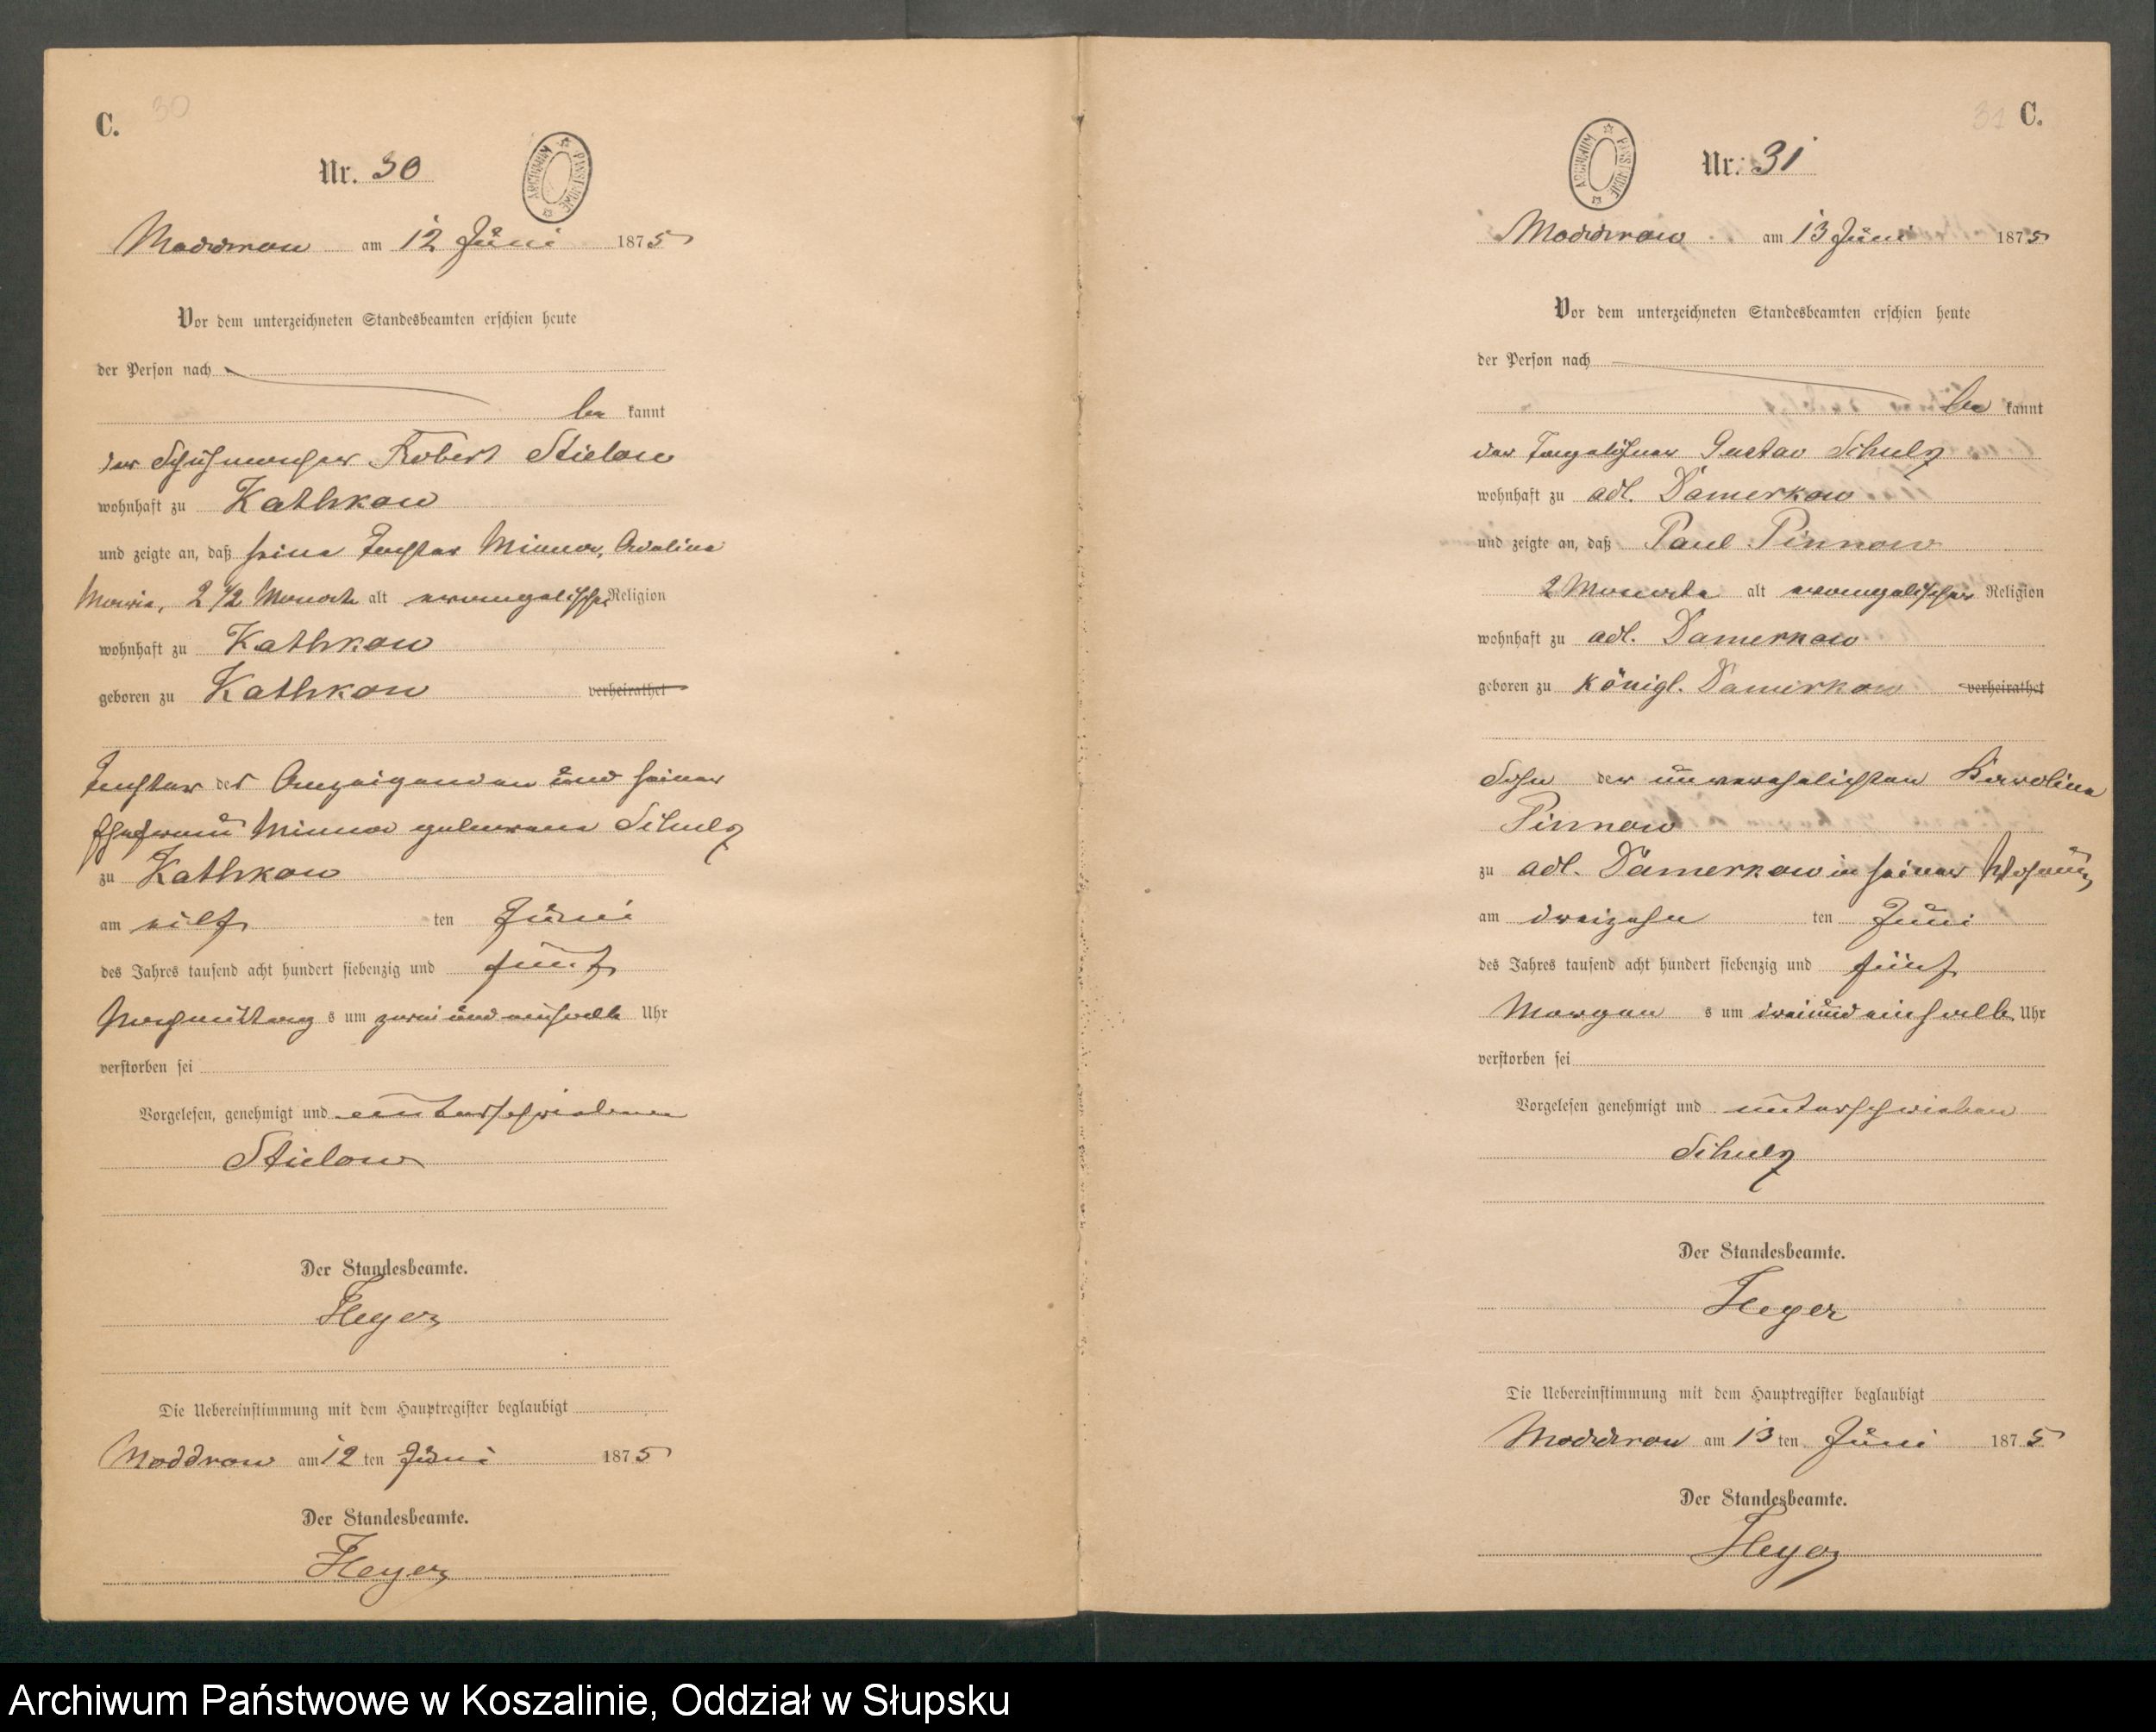 C. 30
Nr. 30
ARCHIWUM PAŃSTWOWE
Moddrow am 12 Juni 1875
Vor dem unterzeichneten Standesbeamten erschien heute
der Person nach
be kannt
der Schuhmacher Robert Stielow
wohnhaft zu Kathkow
und zeigte an, daß seine Tochter Minna, Adeline
Marie, 2 1/2 Monate alt evangelischer Religion
wohnhaft zu Kathkow
geboren zu Kathkow verheirathet
Tochter des Anzeigenden und seiner
Ehefrau Minna geborene Schulz
zu Kathkow
am eilf ten Juni
des Jahres tausend acht hundert siebenzig und fünf
Nachmittag s um zwei und einhalb Uhr
verstorben sei
Vorgelesen, genehmigt und unterschrieben
Stielow
Der Standesbeamte.
Heyer
Die Uebereinstimmung mit dem Hauptregister beglaubigt
Moddrow am 12 ten Juni 1875
Der Standesbeamte.
Heyer
31 C.
ARCHIWUM PAŃSTWOWE
Nr. 31
Moddrow am 13 Juni 1875
Vor dem unterzeichneten Standesbeamten erschien heute
der Person nach
be kannt
der Tagelöhner Gustav Schulz
wohnhaft zu adl. Damerkow
und zeigte an, daß Paul Pinnow
2 Monate alt evangelischer Religion
wohnhaft zu adl. Damerkow
geboren zu Königl. Damerkow verheirathet
Sohn der unverehelichten Karoline
Pinnow
zu adl. Damerkow in seiner Wohnung
am dreizehn ten Juni
des Jahres tausend acht hundert siebenzig und fünf
Morgen s um drei und einhalb Uhr
verstorben sei
Vorgelesen genehmigt und unterschrieben
Schulz
Der Standesbeamte.
Heyer
Die Uebereinstimmung mit dem Hauptregister beglaubigt
Moddrow am 13 ten Juni 1875
Der Standesbeamte.
Heyer
Archiwum Państwowe w Koszalinie, Oddział w Słupsku